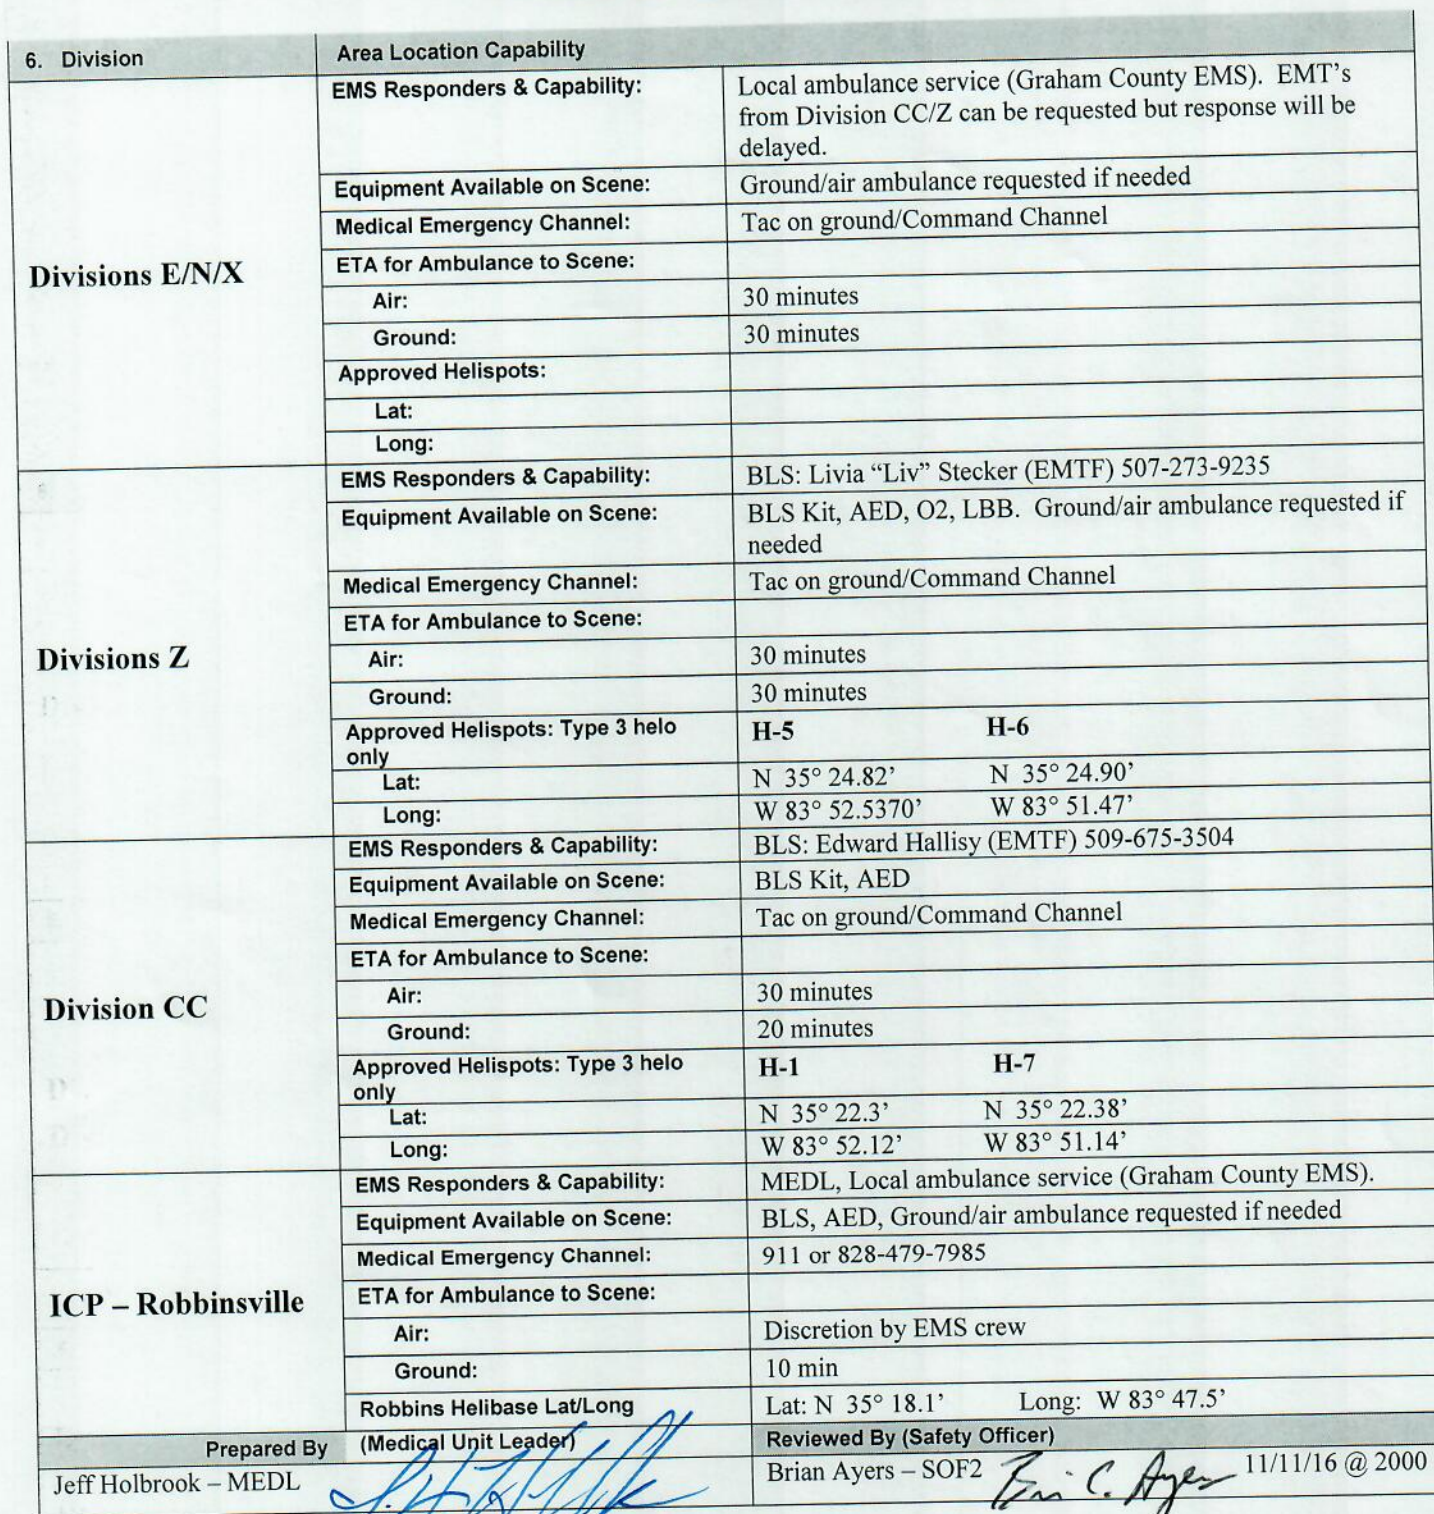 6. Division Area Location Capability
EMS Responders & Capability: Local ambulance service (Graham County EMS). EMT's
from Division CC/Z can be requested but response will be
delayed.
Equipment Available on Scene: Ground/air ambulance requested if needed
Medical Emergency Channel: Tac on ground/Command Channel
Divisions E/N/X
ETA for Ambulance to Scene:
Air: 30 minutes
Ground: 30 minutes
Approved Helispots:
Lat:
Long:
EMS Responders & Capability: BLS: Livia “Liv” Stecker (EMTF) 507-273-9235
Equipment Available on Scene: BLS Kit, AED, O2, LBB. Ground/air ambulance requested if
needed
Medical Emergency Channel: Tac on ground/Command Channel
ETA for Ambulance to Scene:
Divisions Z
Air: 30 minutes
Ground: 30 minutes
Approved Helispots: Type 3 helo H-5 H-6
only
Lat: N 35° 24.82’ N 35° 24.90’
Long: W 83° 52.5370’ W 83° 51.47’
EMS Responders & Capability: BLS: Edward Hallisy (EMTF) 509-675-3504
Equipment Available on Scene: BLS Kit, AED
Medical Emergency Channel: Tac on ground/Command Channel
ETA for Ambulance to Scene:
Division CC
Air: 30 minutes
Ground: 20 minutes
Approved Helispots: Type 3 helo H-1 H-7
only
Lat: N 35° 22.3’ N 35° 22.38’
Long: W 83° 52.12’ W 83° 51.14’
EMS Responders & Capability: MEDL, Local ambulance service (Graham County EMS).
Equipment Available on Scene: BLS, AED, Ground/air ambulance requested if needed
Medical Emergency Channel: 911 or 828-479-7985
ICP – Robbinsville
ETA for Ambulance to Scene:
Air: Discretion by EMS crew
Ground: 10 min
Robbins Helibase Lat/Long Lat: N 35° 18.1’ Long: W 83° 47.5’
Prepared By (Medical Unit Leader) Reviewed By (Safety Officer)
Jeff Holbrook – MEDL Brian Ayers – SOF2 Bri C. Ayers 11/11/16 @ 2000